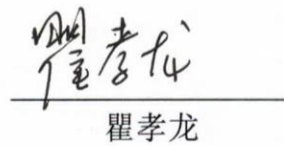 瞿孝龙
瞿孝龙